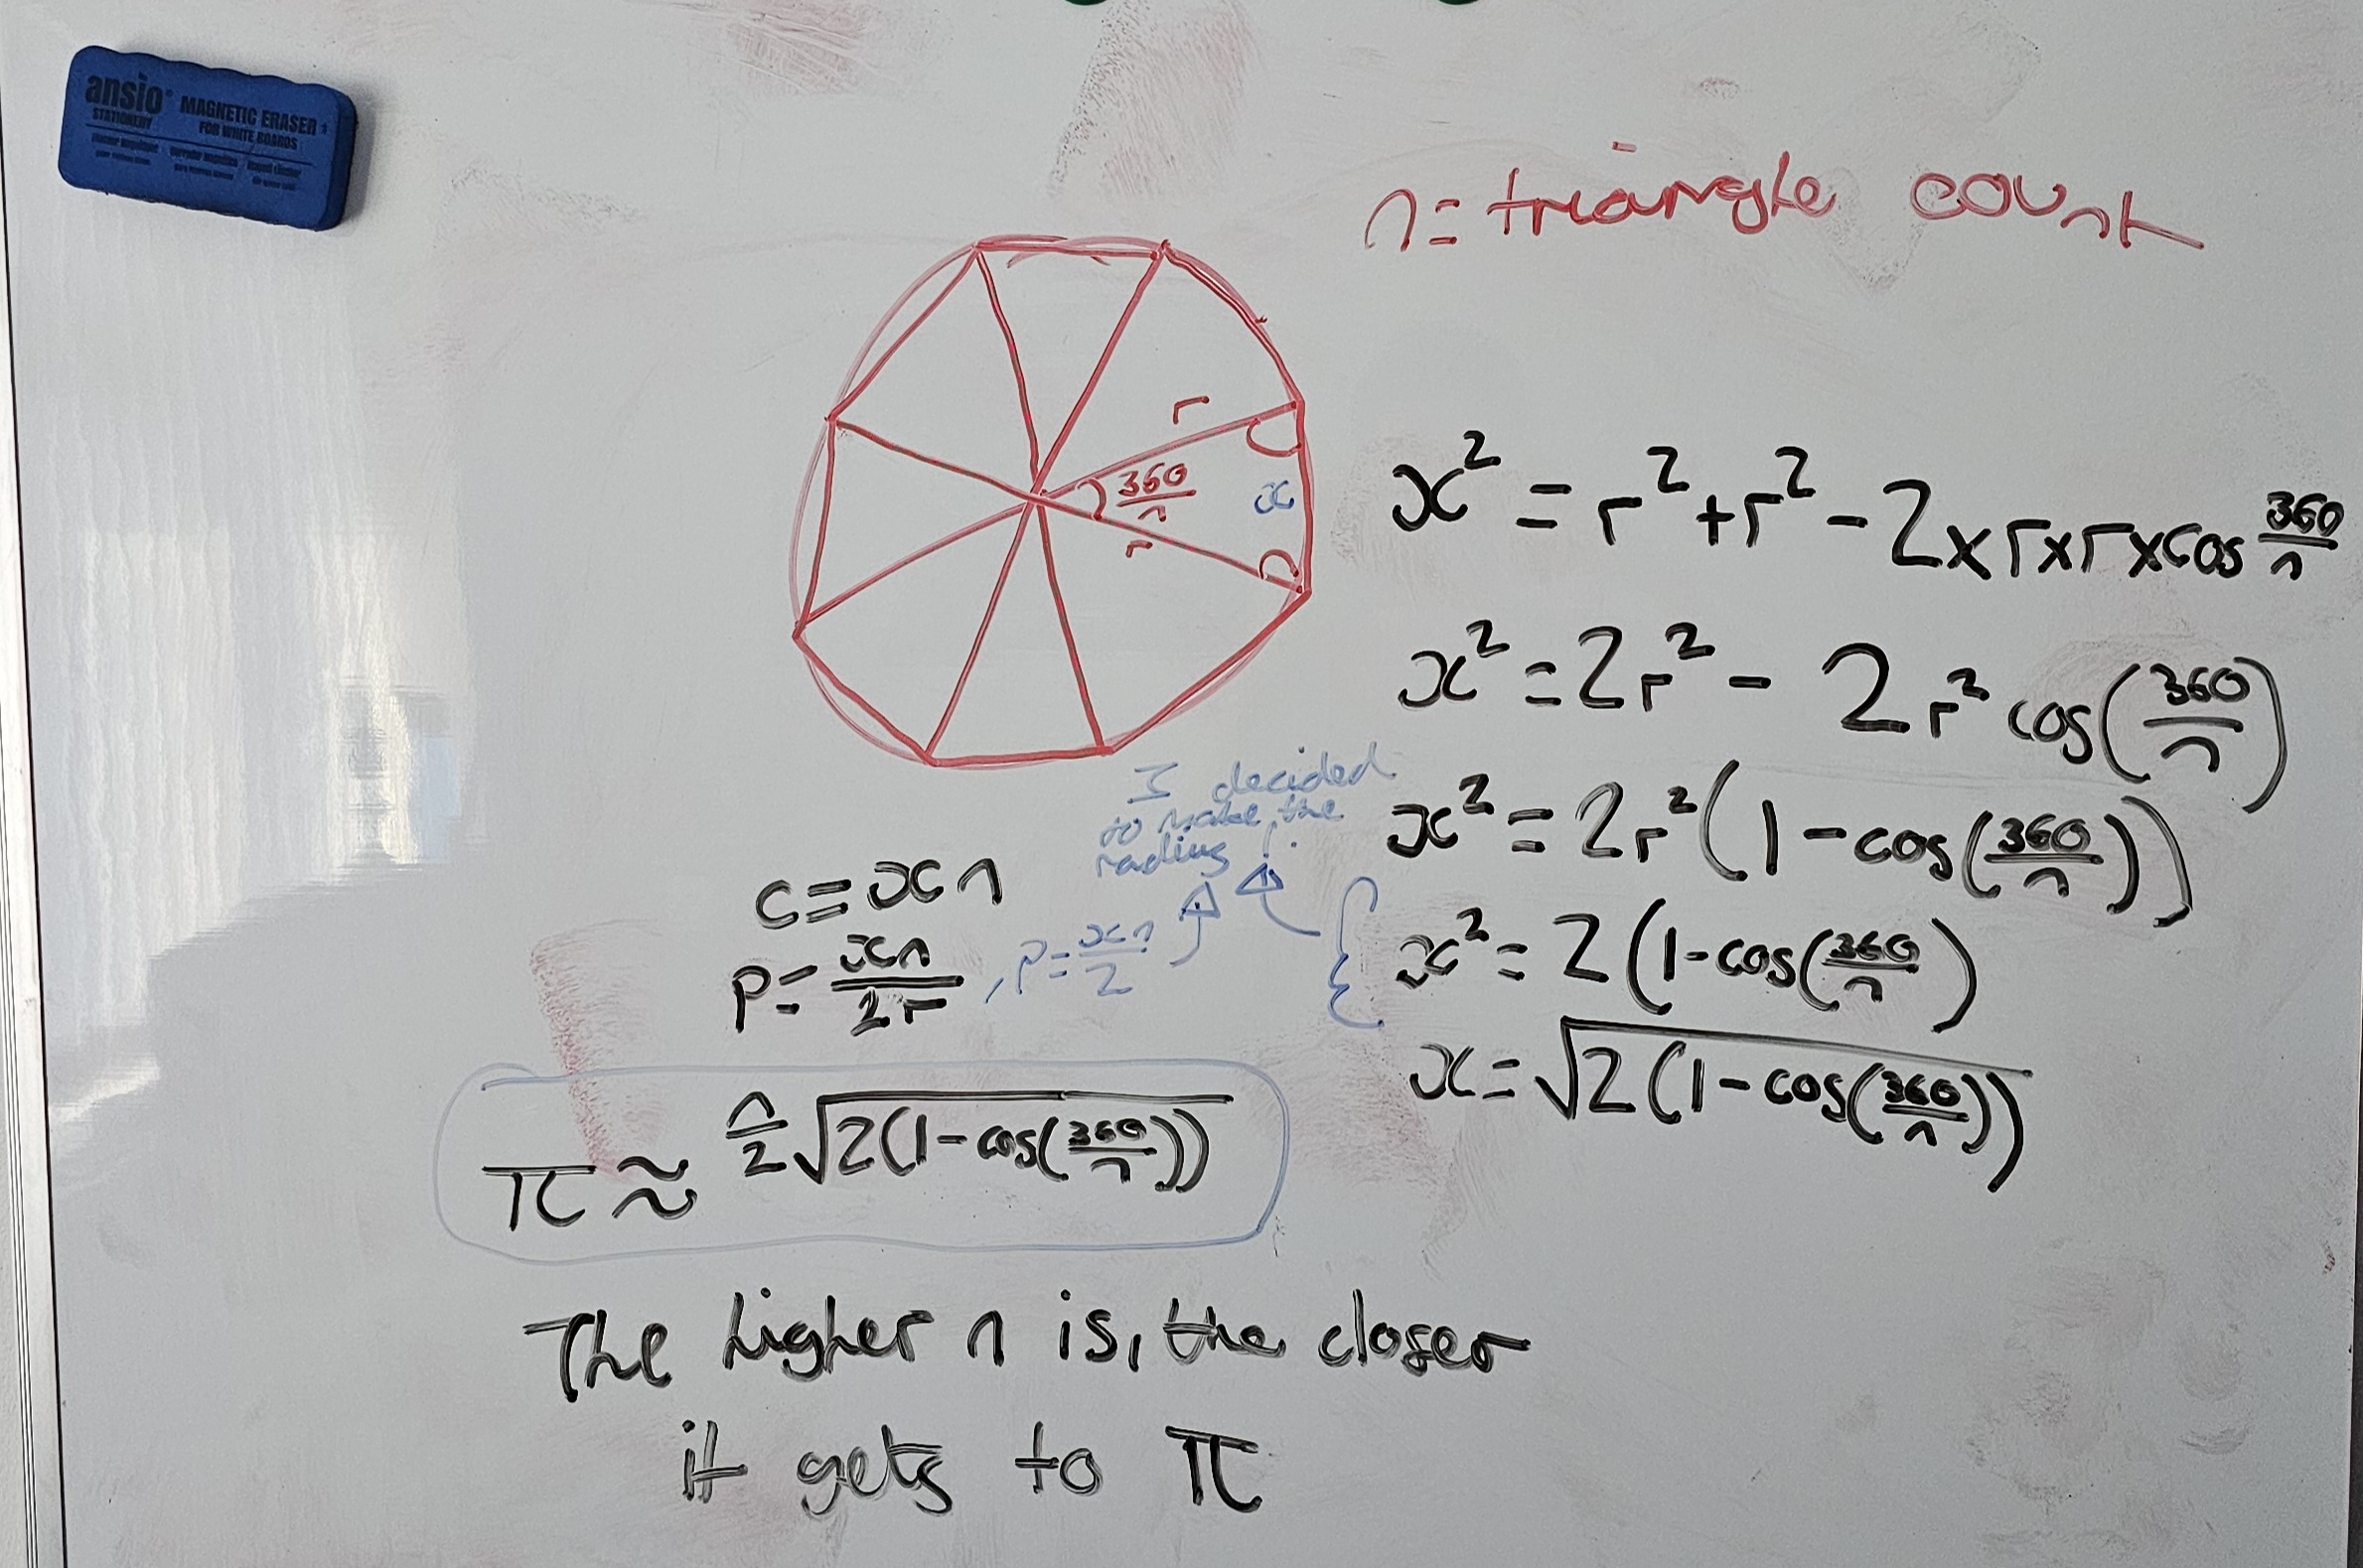 ansio
STATIONERY
MAGNETIC ERASER
FOR WHITE BOARDS
n = triangle count
r
360/n
x
r
x² = r² + r² - 2 x r x r x cos 360/n
x² = 2r² - 2r² cos(360/n)
x² = 2r²(1 - cos(360/n))
x² = 2(1 - cos(360/n)
x = √2(1 - cos(360/n))
I decided
to make the
radius 1.
c = xn
P = xn/2r , P = xn/2
π ≈ n/2 √2(1 - cos(360/n))
The higher n is, the closer
it gets to π